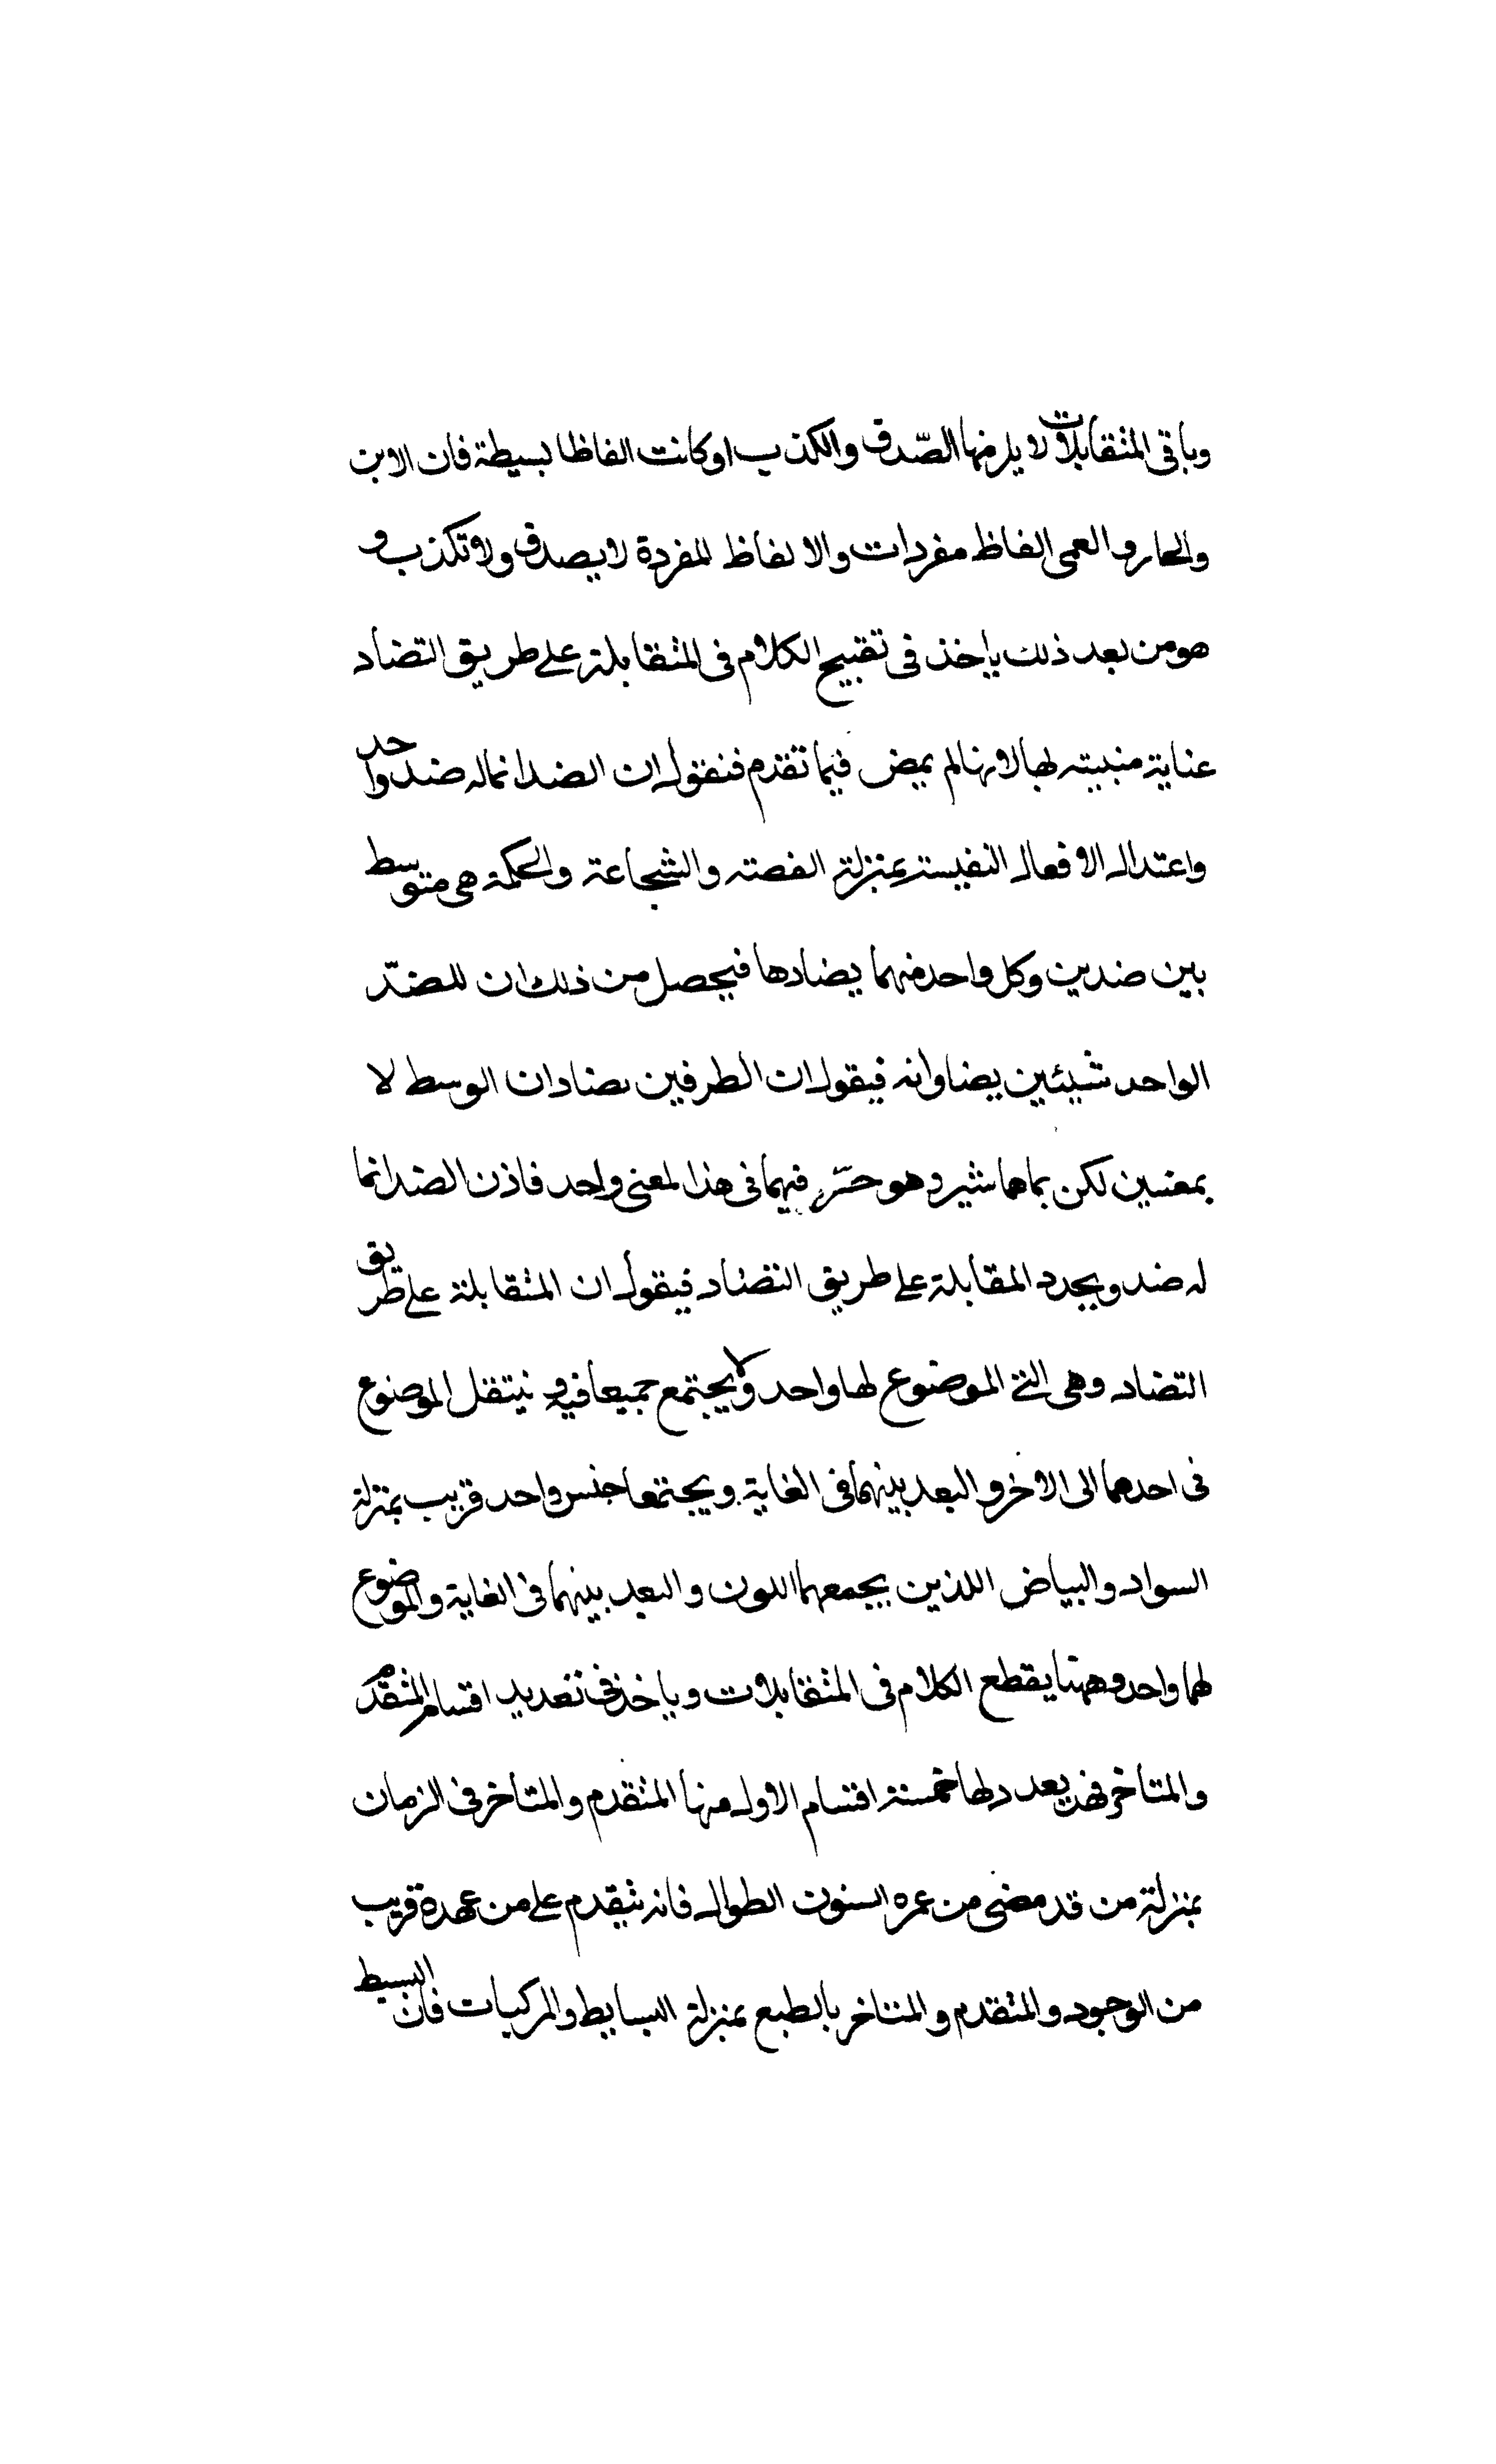 وباقى المتقابلات لا يلزمها الصّدق والكذب اوكانت الفاظا بسيطة فان الابن
والحار والعمى الفاظ مفردات والالفاظ المفردة لا يصدق ولا تكذب و
هو من بعد ذلك ياخذ فى تقبيح الكلام فى المتقابلة على طريق التضاد
عناية منبيته لها لانها لم يمض فيما تقدم فنقول ان الضد انما له ضد واحد
واعتدال الافعال النفيسة بمنزلة الفصته والشجاعة والحكمة هى متوسط
بين ضدين وكل واحد منهما يضادها فيحصل من ذلك ان للضدّ
الواحد شيئين يضاوانه فيقول ان الطرفين يضادان الوسط لا
بمعنيين لكن بماهما شير وهو فيهما فى هذا المعنى واحد فاذن الضد انما
له ضد ويجدد المقابلة على طريق التضاد فيقول ان المتقابلة على طريق
التضاد وهى التى الموضوع لها واحد ولا يجتمع جميعا فيه و ينتقل الموضوع
فى احدهما الى الاخر والبعد بينهما فى الغاية ويجتمعا جنس واحد قريب بمنزلة
السواد والبياض اللذين يجمعهما اللون والبعد بينهما فى الغاية والموضوع
لهما واحد وههنا يقطع الكلام فى المتقابلات وياخذ فى تعديد اقسام المتقدم
والمتاخر فهو يعدد لها خمسة اقسام الاول منها المتقدم والمتاخر فى الزمان
بمنزلة من قد مضى من عمره السنون الطوال فانه يتقدم على من عهده قريب
من الوجود والمتقدم والمتاخر بالطبع بمنزلة البسايط والمركبات فان البسيط